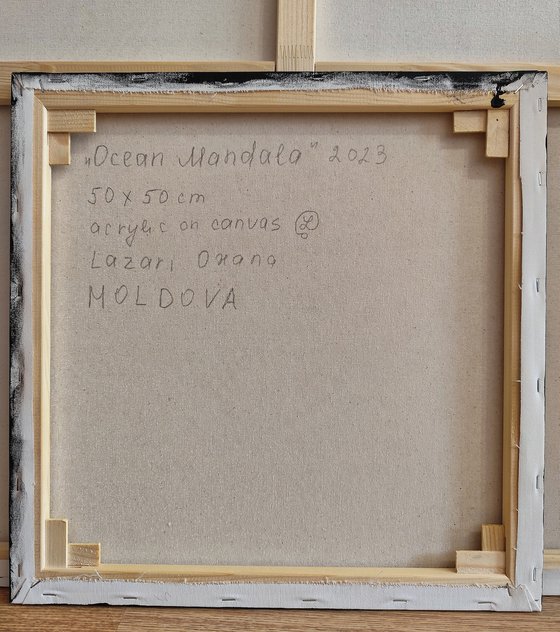 „Ocean Mandala" 2023
50 x 50 cm
acrylic on canvas
Lazari Oxana
MOLDOVA